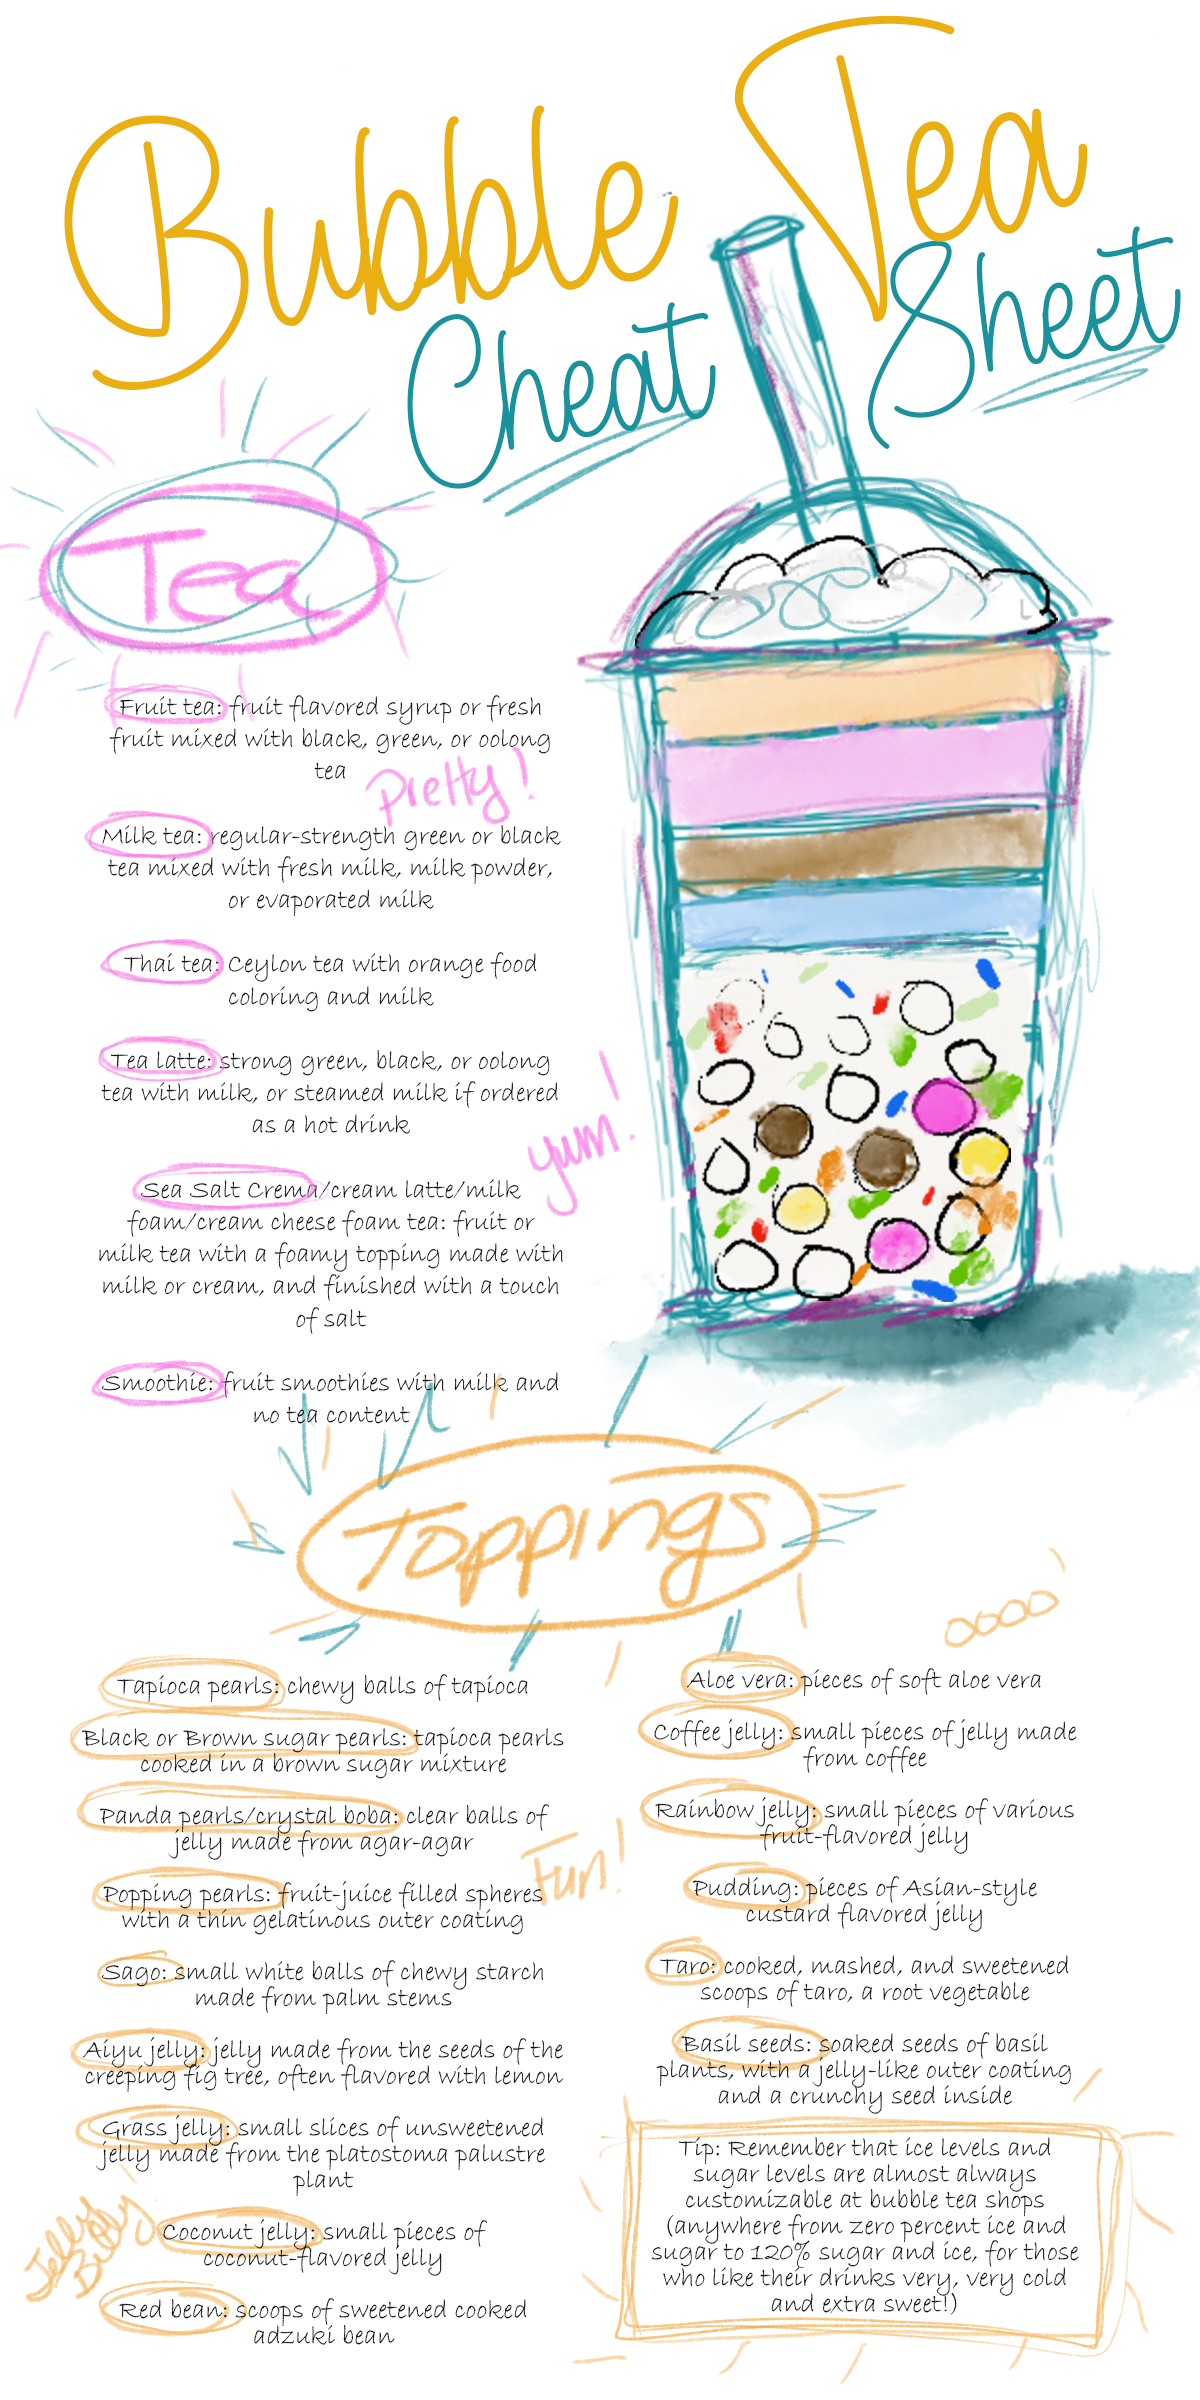 Bubble Tea
Cheat Sheet
Tea
Fruit tea: fruit flavored syrup or fresh
fruit mixed with black, green, or oolong
tea
Pretty!
Milk tea: regular-strength green or black
tea mixed with fresh milk, milk powder,
or evaporated milk
Thai tea: Ceylon tea with orange food
coloring and milk
Tea latte: strong green, black, or oolong
tea with milk, or steamed milk if ordered
as a hot drink
yum!
Sea Salt Crema/cream latte/milk
foam/cream cheese foam tea: fruit or
milk tea with a foamy topping made with
milk or cream, and finished with a touch
of salt
Smoothie: fruit smoothies with milk and
no tea content
Toppings
Tapioca pearls: chewy balls of tapioca
Black or Brown sugar pearls: tapioca pearls
cooked in a brown sugar mixture
Panda pearls/crystal boba: clear balls of
jelly made from agar-agar
Fun!
Popping pearls: fruit-juice filled spheres
with a thin gelatinous outer coating
Sago: small white balls of chewy starch
made from palm stems
Aiyu jelly: jelly made from the seeds of the
creeping fig tree, often flavored with lemon
Grass jelly: small slices of unsweetened
jelly made from the platostoma palustre
plant
Jelly
Belly
Coconut jelly: small pieces of
coconut-flavored jelly
Red bean: scoops of sweetened cooked
adzuki bean
oooo!
Aloe vera: pieces of soft aloe vera
Coffee jelly: small pieces of jelly made
from coffee
Rainbow jelly: small pieces of various
fruit-flavored jelly
Pudding: pieces of Asian-style
custard flavored jelly
Taro: cooked, mashed, and sweetened
scoops of taro, a root vegetable
Basil seeds: soaked seeds of basil
plants, with a jelly-like outer coating
and a crunchy seed inside
Tip: Remember that ice levels and
sugar levels are almost always
customizable at bubble tea shops
(anywhere from zero percent ice and
sugar to 120% sugar and ice, for those
who like their drinks very, very cold
and extra sweet!)